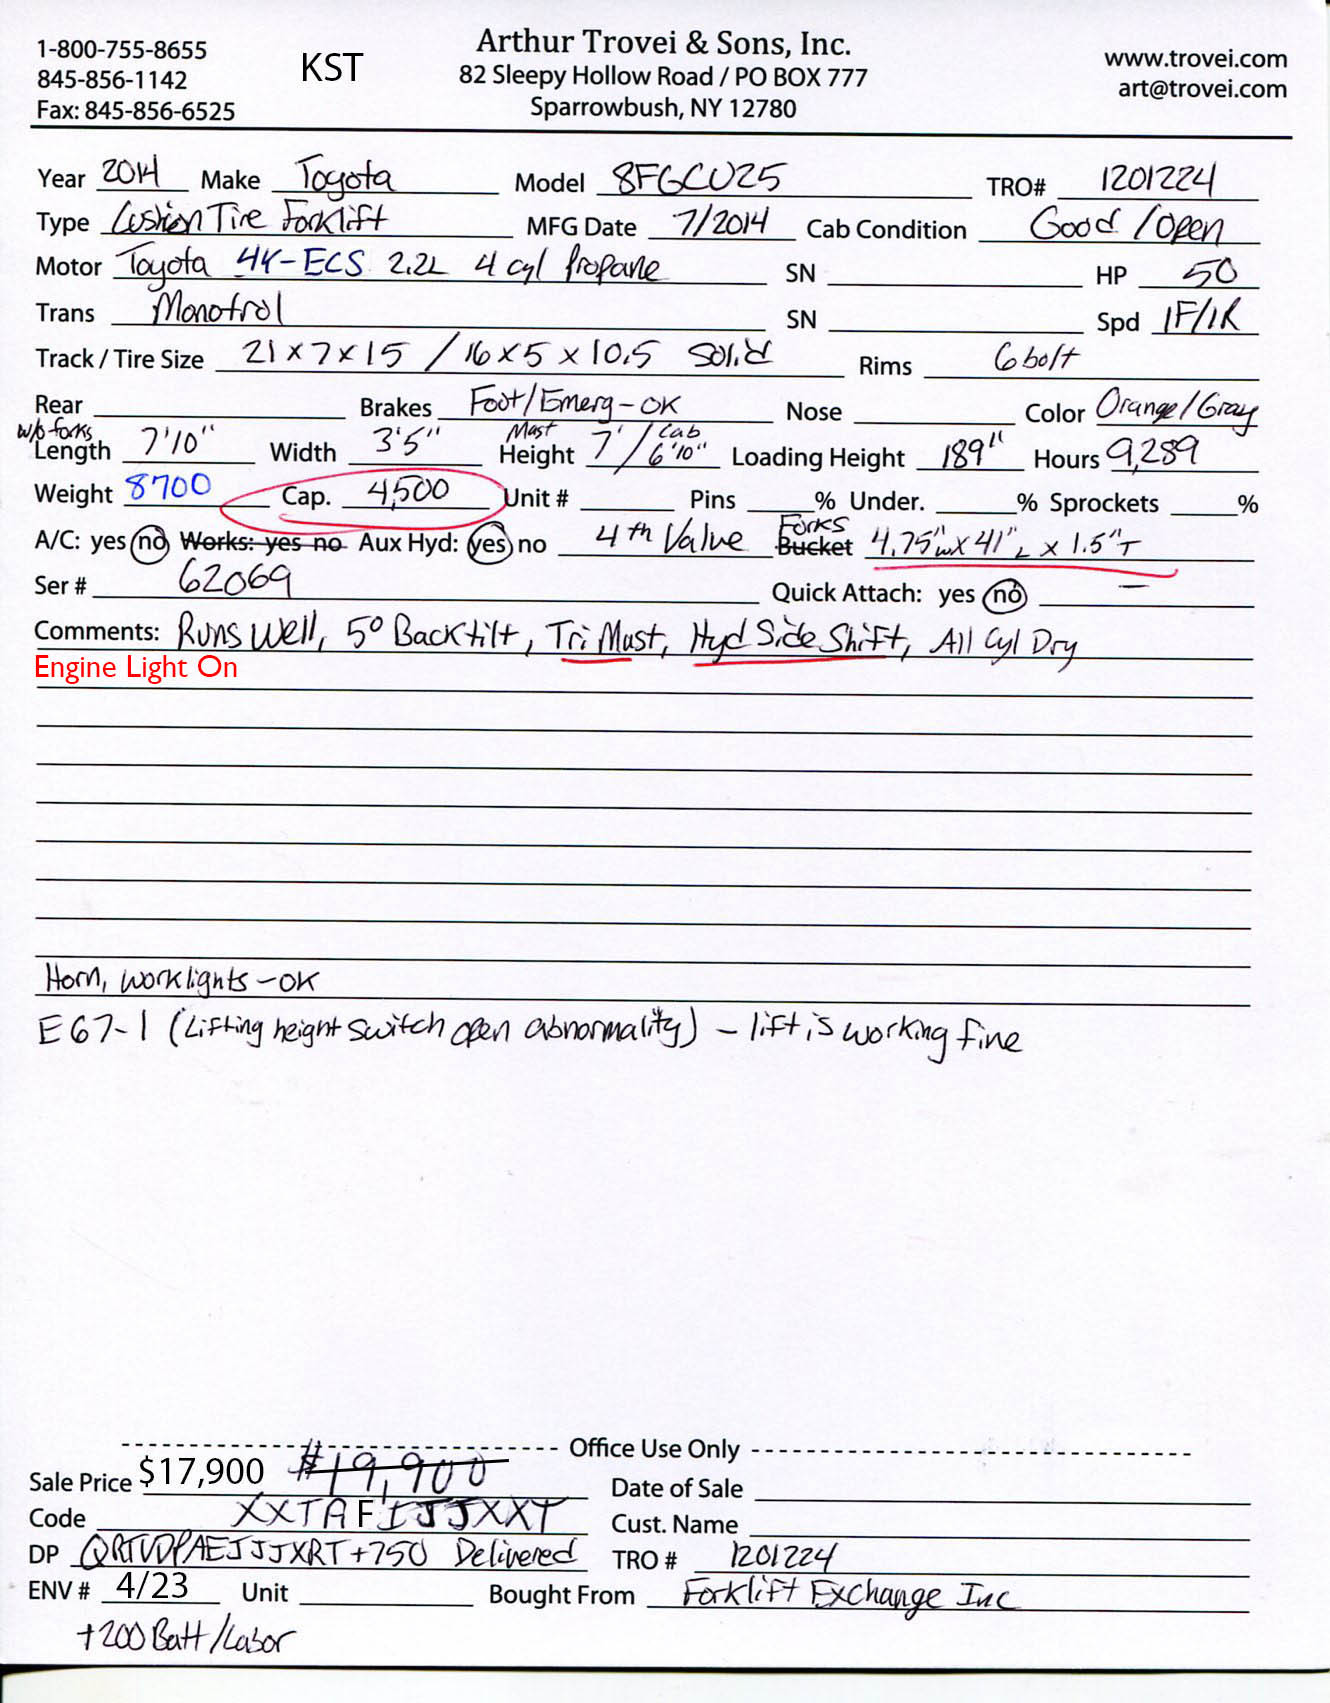 1-800-755-8655 KST Arthur Trovei & Sons, Inc. www.trovei.com
845-856-1142 82 Sleepy Hollow Road / PO BOX 777 art@trovei.com
Fax: 845-856-6525 Sparrowbush, NY 12780
Year 2014 Make Toyota Model 8FGCU25 TRO# 1201224
Type Cushion Tire Forklift MFG Date 7/2014 Cab Condition Good / Open
Motor Toyota 4Y-ECS 2.2L 4 cyl Propane SN HP 50
Trans Monotrol SN Spd 1F/1R
Track / Tire Size 21 x 7 x 15 / 16 x 5 x 10.5 Solid Rims 6 bolt
Rear Brakes Foot/Emerg-OK Nose Color Orange/Gray
w/o forks Length 7'10" Width 3'5" Mast Height 7' / Cab 6'10" Loading Height 189" Hours 9,289
Weight 8700 Cap. 4,500 Unit # Pins % Under. % Sprockets %
A/C: yes no Works: yes no Aux Hyd: yes no 4th Valve Forks Bucket 4.75"w x 41"L x 1.5"T
Ser # 62069 Quick Attach: yes no –
Comments: Runs Well, 5° Backtilt, Tri Mast, Hyd Side Shift, All Cyl Dry
Engine Light On
Horn, worklights-OK
E67-1 (Lifting height switch open abnormality) - lift is working fine
Office Use Only
Sale Price $17,900 $19,900 Date of Sale
Code XXTAFIJJXXT Cust. Name
DP QRTVDPAEJJJXRT+750 Delivered TRO # 1201224
ENV # 4/23 Unit Bought From Forklift Exchange Inc
+200 Batt/Labor